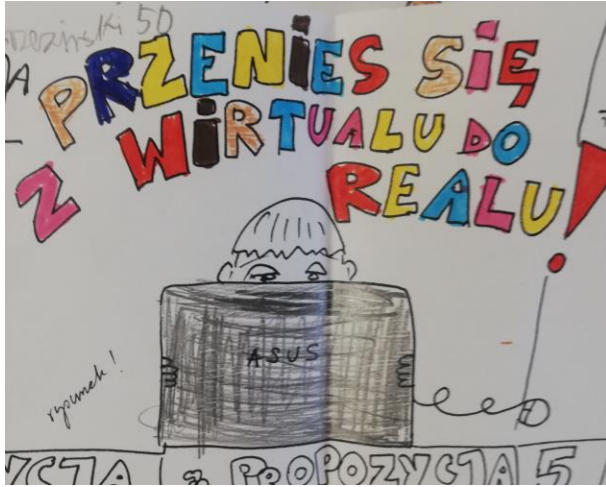 50
PRZENIES SIĘ
Z WIRTUALU DO
REALU!
ASUS
rysunek!
PROPOZYCJA 5